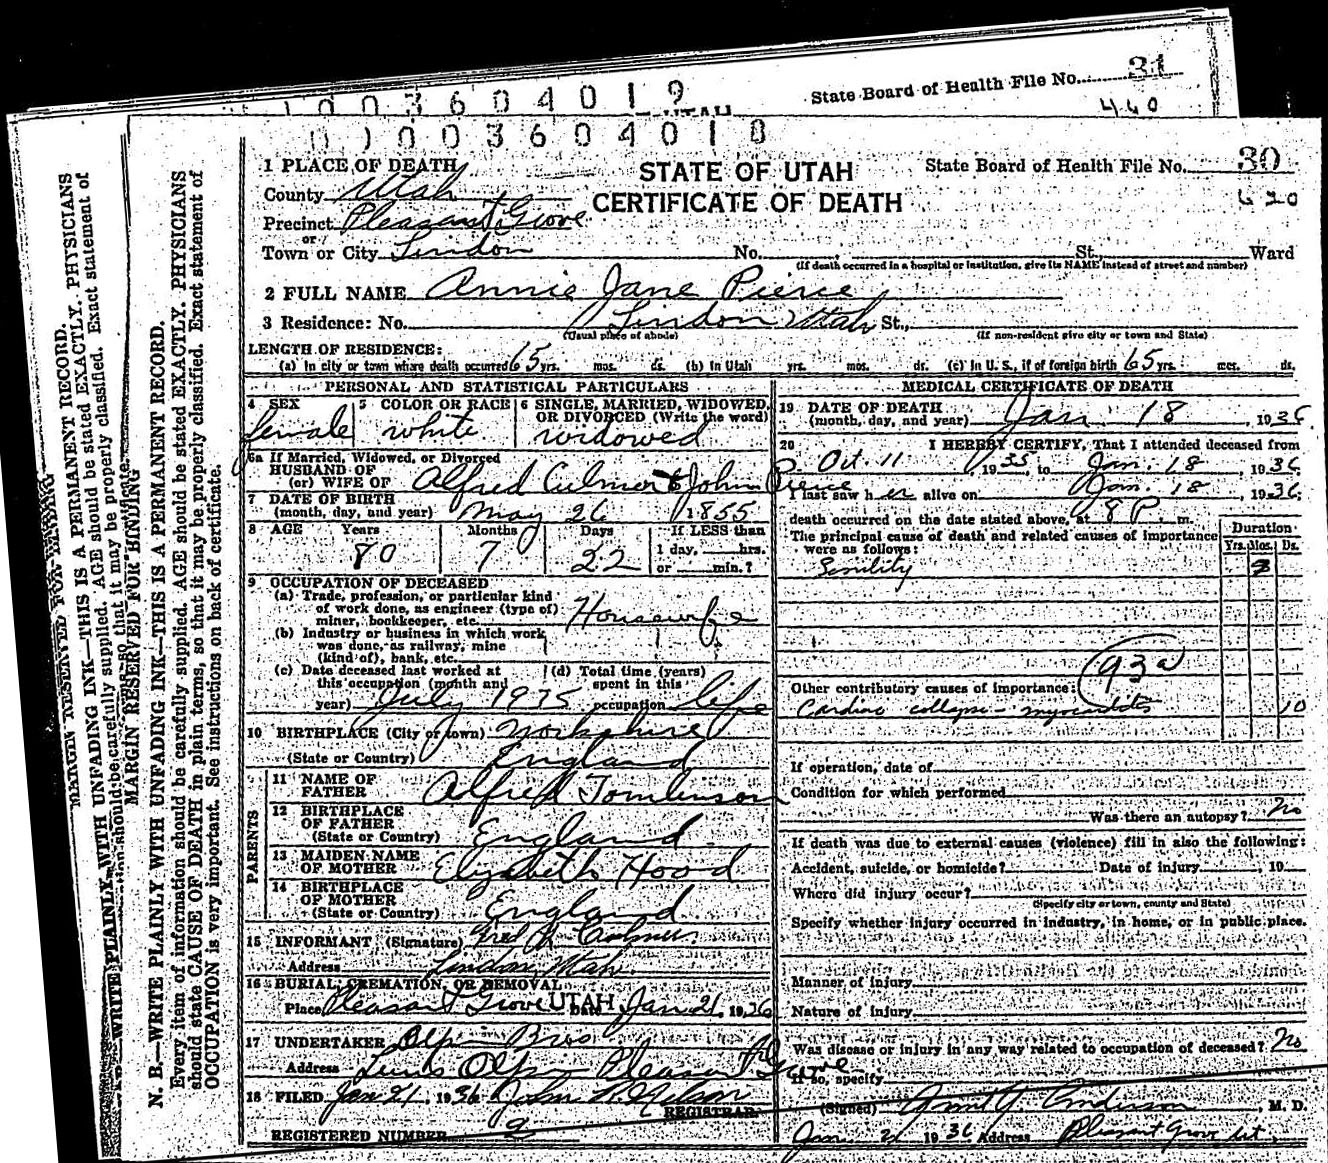 1 0 0 3 6 0 4 0 1 9
State Board of Health File No. 31
460
UTAH
0 0 3 6 0 4 0 1 8
1 PLACE OF DEATH
STATE OF UTAH
State Board of Health File No. 30
County Utah
CERTIFICATE OF DEATH
620
Precinct Pleasant Grove
or
Town or City Lindon No. St., Ward
(If death occurred in a hospital or institution, give its NAME instead of street and number)
2 FULL NAME Annie Jane Pierce
3 Residence: No. Lindon Utah St.,
(Usual place of abode) (If non-resident give city or town and State)
LENGTH OF RESIDENCE:
(a) In city or town where death occurred 65 yrs. mos. ds. (b) In Utah yrs. mos. ds. (c) In U. S., if of foreign birth 65 yrs. mos. ds.
PERSONAL AND STATISTICAL PARTICULARS
4 SEX female
5 COLOR OR RACE white
6 SINGLE, MARRIED, WIDOWED, OR DIVORCED (Write the word) widowed
6a If Married, Widowed, or Divorced
HUSBAND OF
(or) WIFE OF Alfred Culmer & John P. Pierce
7 DATE OF BIRTH
(month, day, and year) May 26 1855
8 AGE Years Months Days If LESS than
80 7 22 1 day, hrs.
or min.?
9 OCCUPATION OF DECEASED
(a) Trade, profession, or particular kind
of work done, as engineer (type of)
miner, bookkeeper, etc. Housewife
(b) Industry or business in which work
was done, as railway, mine
(kind of), bank, etc.
(c) Date deceased last worked at
this occupation (month and
year) July 1935
(d) Total time (years)
spent in this
occupation life
10 BIRTHPLACE (City or town) Yorkshire
(State or Country) England
PARENTS
11 NAME OF
FATHER Alfred Tomlinson
12 BIRTHPLACE
OF FATHER
(State or Country) England
13 MAIDEN NAME
OF MOTHER Elizabeth Hood
14 BIRTHPLACE
OF MOTHER
(State or Country) England
15 INFORMANT (Signature) Fred J. Culmer
Address Lindon, Utah
16 BURIAL, CREMATION, OR REMOVAL
Place Pleasant Grove UTAH Date Jan 21, 1936
17 UNDERTAKER Olpin Bros
Address Olpin Pleasant Grove
18 FILED Jan 21, 1936 John Nelson
REGISTRAR
REGISTERED NUMBER 2
MEDICAL CERTIFICATE OF DEATH
19 DATE OF DEATH
(month, day, and year) Jan. 18, 1936
20 I HEREBY CERTIFY, That I attended deceased from
Oct. 11 1935, to Jan. 18, 1936
I last saw her alive on Jan. 18, 1936;
death occurred on the date stated above, at 8 P. m.
The principal cause of death and related causes of importance
were as follows:
Duration
Yrs. Mos. Ds.
Senility
93a
Other contributory causes of importance:
Cardiac collapse - myocarditis 10
If operation, date of
Condition for which performed
Was there an autopsy? No
If death was due to external causes (violence) fill in also the following:
Accident, suicide, or homicide? Date of injury, 19
Where did injury occur?
(Specify city or town, county and State)
Specify whether injury occurred in industry, in home, or in public place.
Manner of injury
Nature of injury
Was disease or injury in any way related to occupation of deceased? No
If so, specify
(Signed) Anderson, M. D.
1936 Address Pleasant Grove Ut.
MARGIN RESERVED FOR BINDING
N. B.—WRITE PLAINLY WITH UNFADING INK—THIS IS A PERMANENT RECORD.
Every item of information should be carefully supplied. AGE should be stated EXACTLY. PHYSICIANS
should state CAUSE OF DEATH in plain terms, so that it may be properly classified. Exact statement of
OCCUPATION is very important. See instructions on back of certificate.